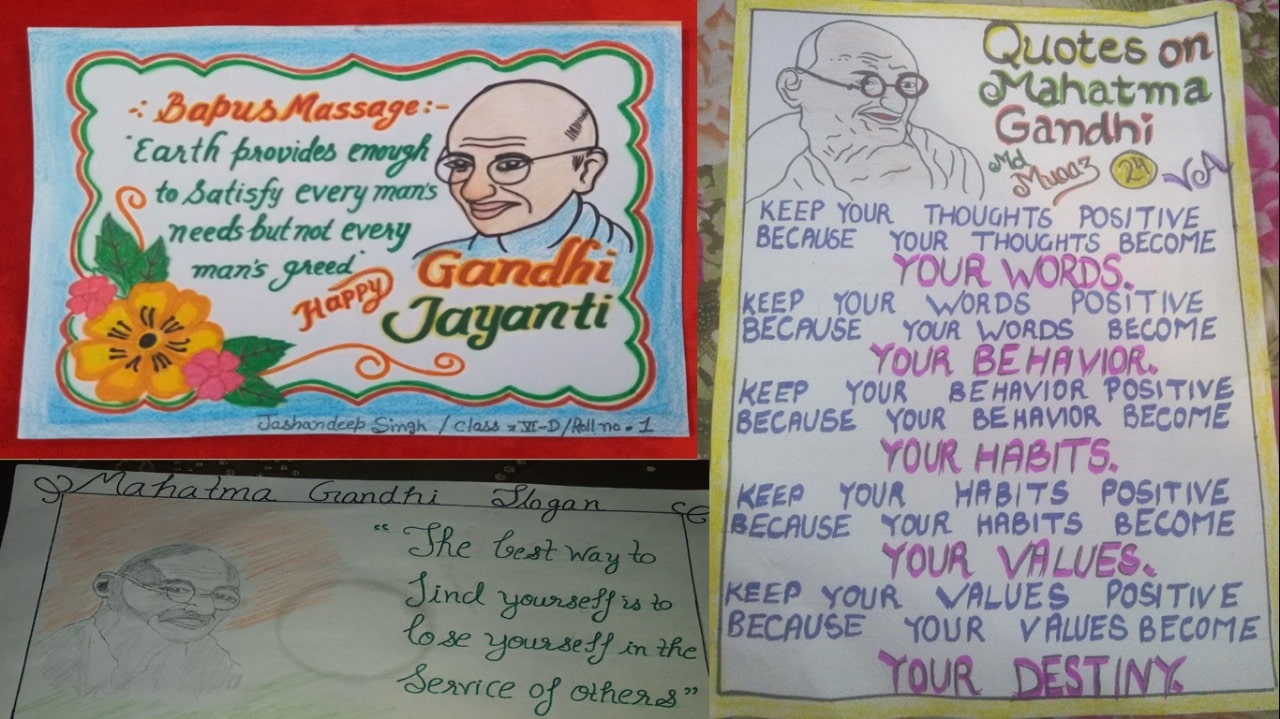 -: Bapus Massage:-
"Earth provides enough
to Satisfy every man's
needs but not every
man's greed"
Happy
Gandhi
Jayanti
Jashandeep Singh / class = VI-D / Roll no = 1
Mahatma Gandhi Slogan
"The best way to
find yourself is to
lose yourself in the
Service of others"
Quotes on
Mahatma
Gandhi
Md
Muaaz
24
VA
KEEP YOUR THOUGHTS POSITIVE
BECAUSE YOUR THOUGHTS BECOME
YOUR WORDS.
KEEP YOUR WORDS POSITIVE
BECAUSE YOUR WORDS BECOME
YOUR BEHAVIOR.
KEEP YOUR BEHAVIOR POSITIVE
BECAUSE YOUR BEHAVIOR BECOME
YOUR HABITS.
KEEP YOUR HABITS POSITIVE
BECAUSE YOUR HABITS BECOME
YOUR VALUES.
KEEP YOUR VALUES POSITIVE
BECAUSE YOUR VALUES BECOME
YOUR DESTINY.